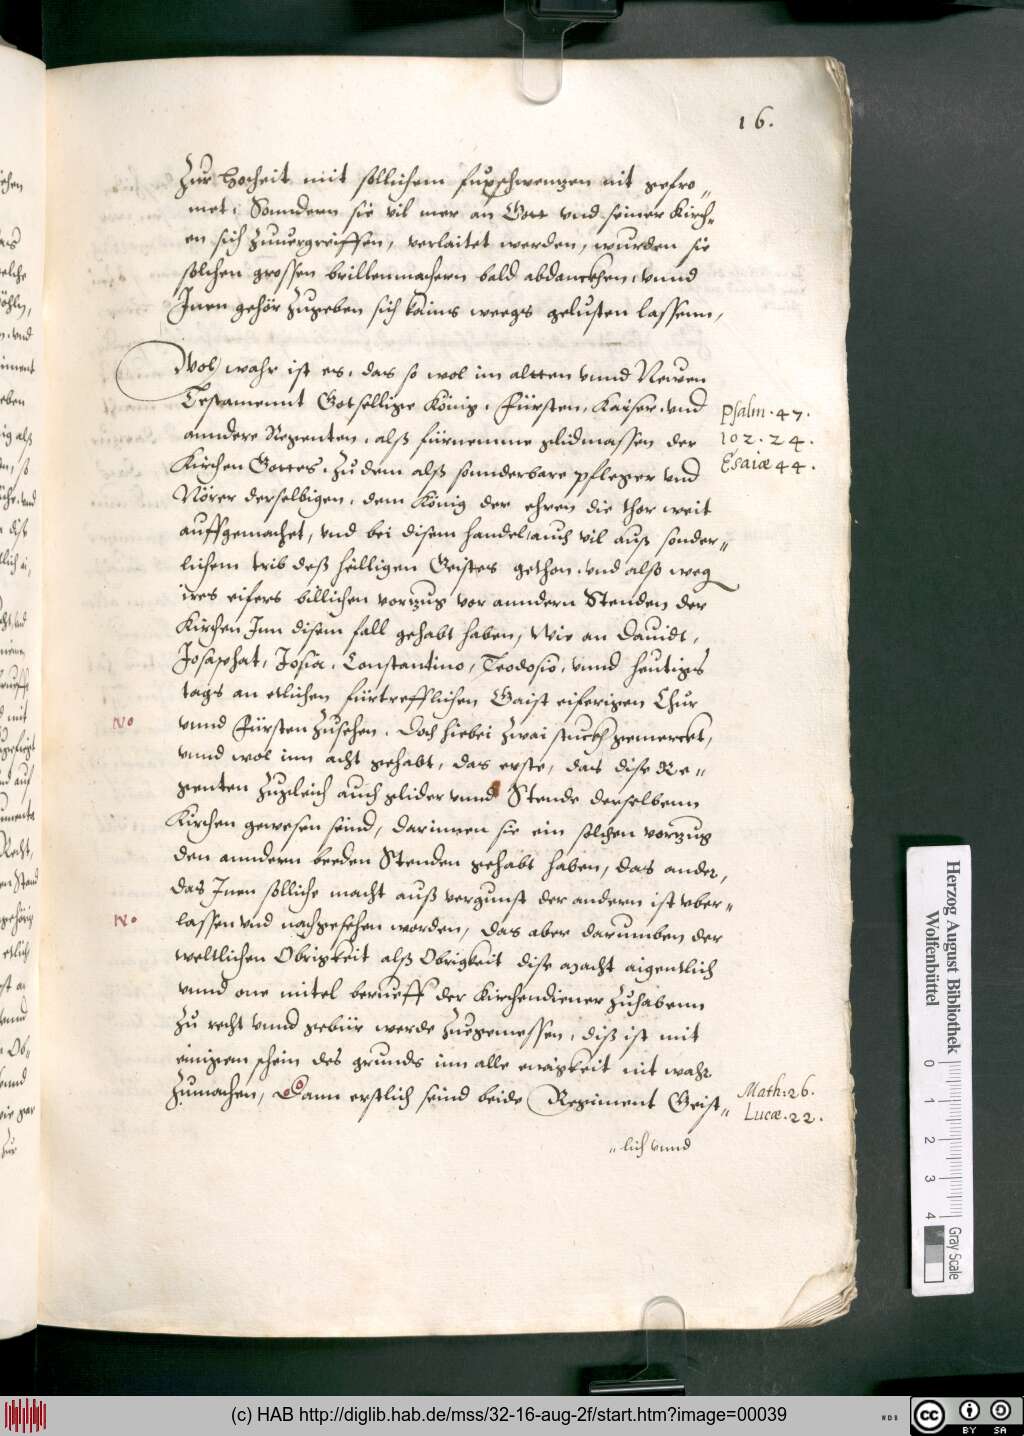 16.
Zur Hocheit mit sollichem fuxschwentzen nit gefro„
met. Sonndern sie vil mer an Gott vnd seiner Kirch„
en sich zuuergreiffen, verlaitet werden, wurden sie
solchen grossen brillenmachern bald abdanckhen, vnnd
Inen gehör zugeben sich kains weegs gelusten lassenn,
Wol wahr ist es, das so wol im altten vnnd Newen
Testamennt Gotsellige König, Fürsten, Kaiser, vnd
anndere Regenten, alß fürnemme glidmassen der
Kirchen Gottes, zu dem alß sonnderbare pfleger vnd
Nörer derselbigen, dem König der ehren die thor weit
auffgemachet, vnd bei disem handel auch vil auß sonder„
lichem trib deß heilligen Geistes gethon, vnd alß weg
ires eifers billichen vorzug vor anndern Stenden der
Kirchen Inn disem fall gehabt haben, Wie an Dauidt,
Josaphat, Josia, Constantino, Teodosio, vnnd heutigs
tags an etlichen fürtrefflichen Gaist eiferigen Chur
vnnd Fürsten zusehen. Doch hiebei zwai stuckh gemerckt,
vnnd wol inn acht gehabt, das erste, das dise Re„
genten zugleich auch glider vnnd Stende derselbenn
Kirchen gewesen seind, darinnen sie ein solchen vorzug
den anndern beeden Stenden gehabt haben, das ander,
das Inen solliche macht auß vergunst der andern ist vber„
lassen vnd nachgesehen worden, Das aber darumben der
weltlichen Obrigkeit alß Obrigkeit dise macht aigentlich
vnnd one mitel berueff der Kirchendiener zuhabenn
zu recht vnnd gebür werde zuegemessen, diß ist mit
einigen schein des grunds inn alle ewigkeit nit wahr
zumachen, Dann erstlich seind beide Regiment Geist„
„lich vnnd
Psalm. 47.
102. 24.
Esaiæ 44.
No
No
Math: 26.
Lucæ. 22.
Herzog August Bibliothek
Wolfenbüttel
0 1 2 3 4
Gray Scale
(c) HAB http://diglib.hab.de/mss/32-16-aug-2f/start.htm?image=00039
WDB
cc BY SA